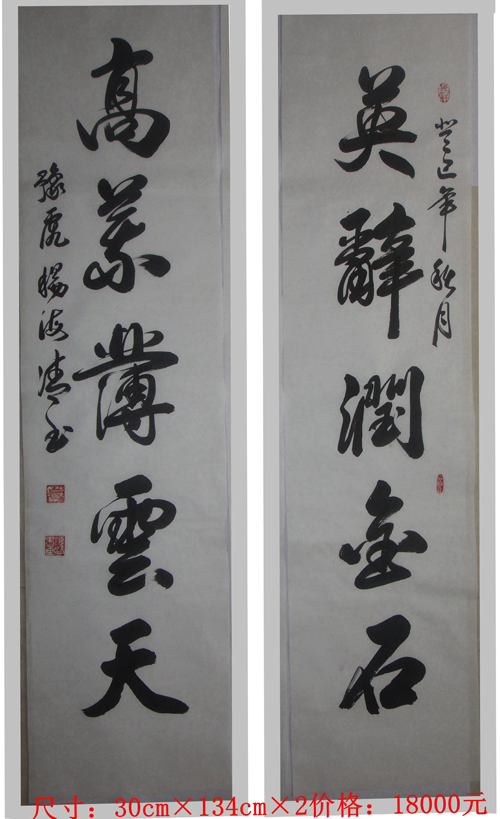 癸巳年秋月
英辭潤金石
高義薄雲天
尺寸：30cm×134cm×2价格：18000元